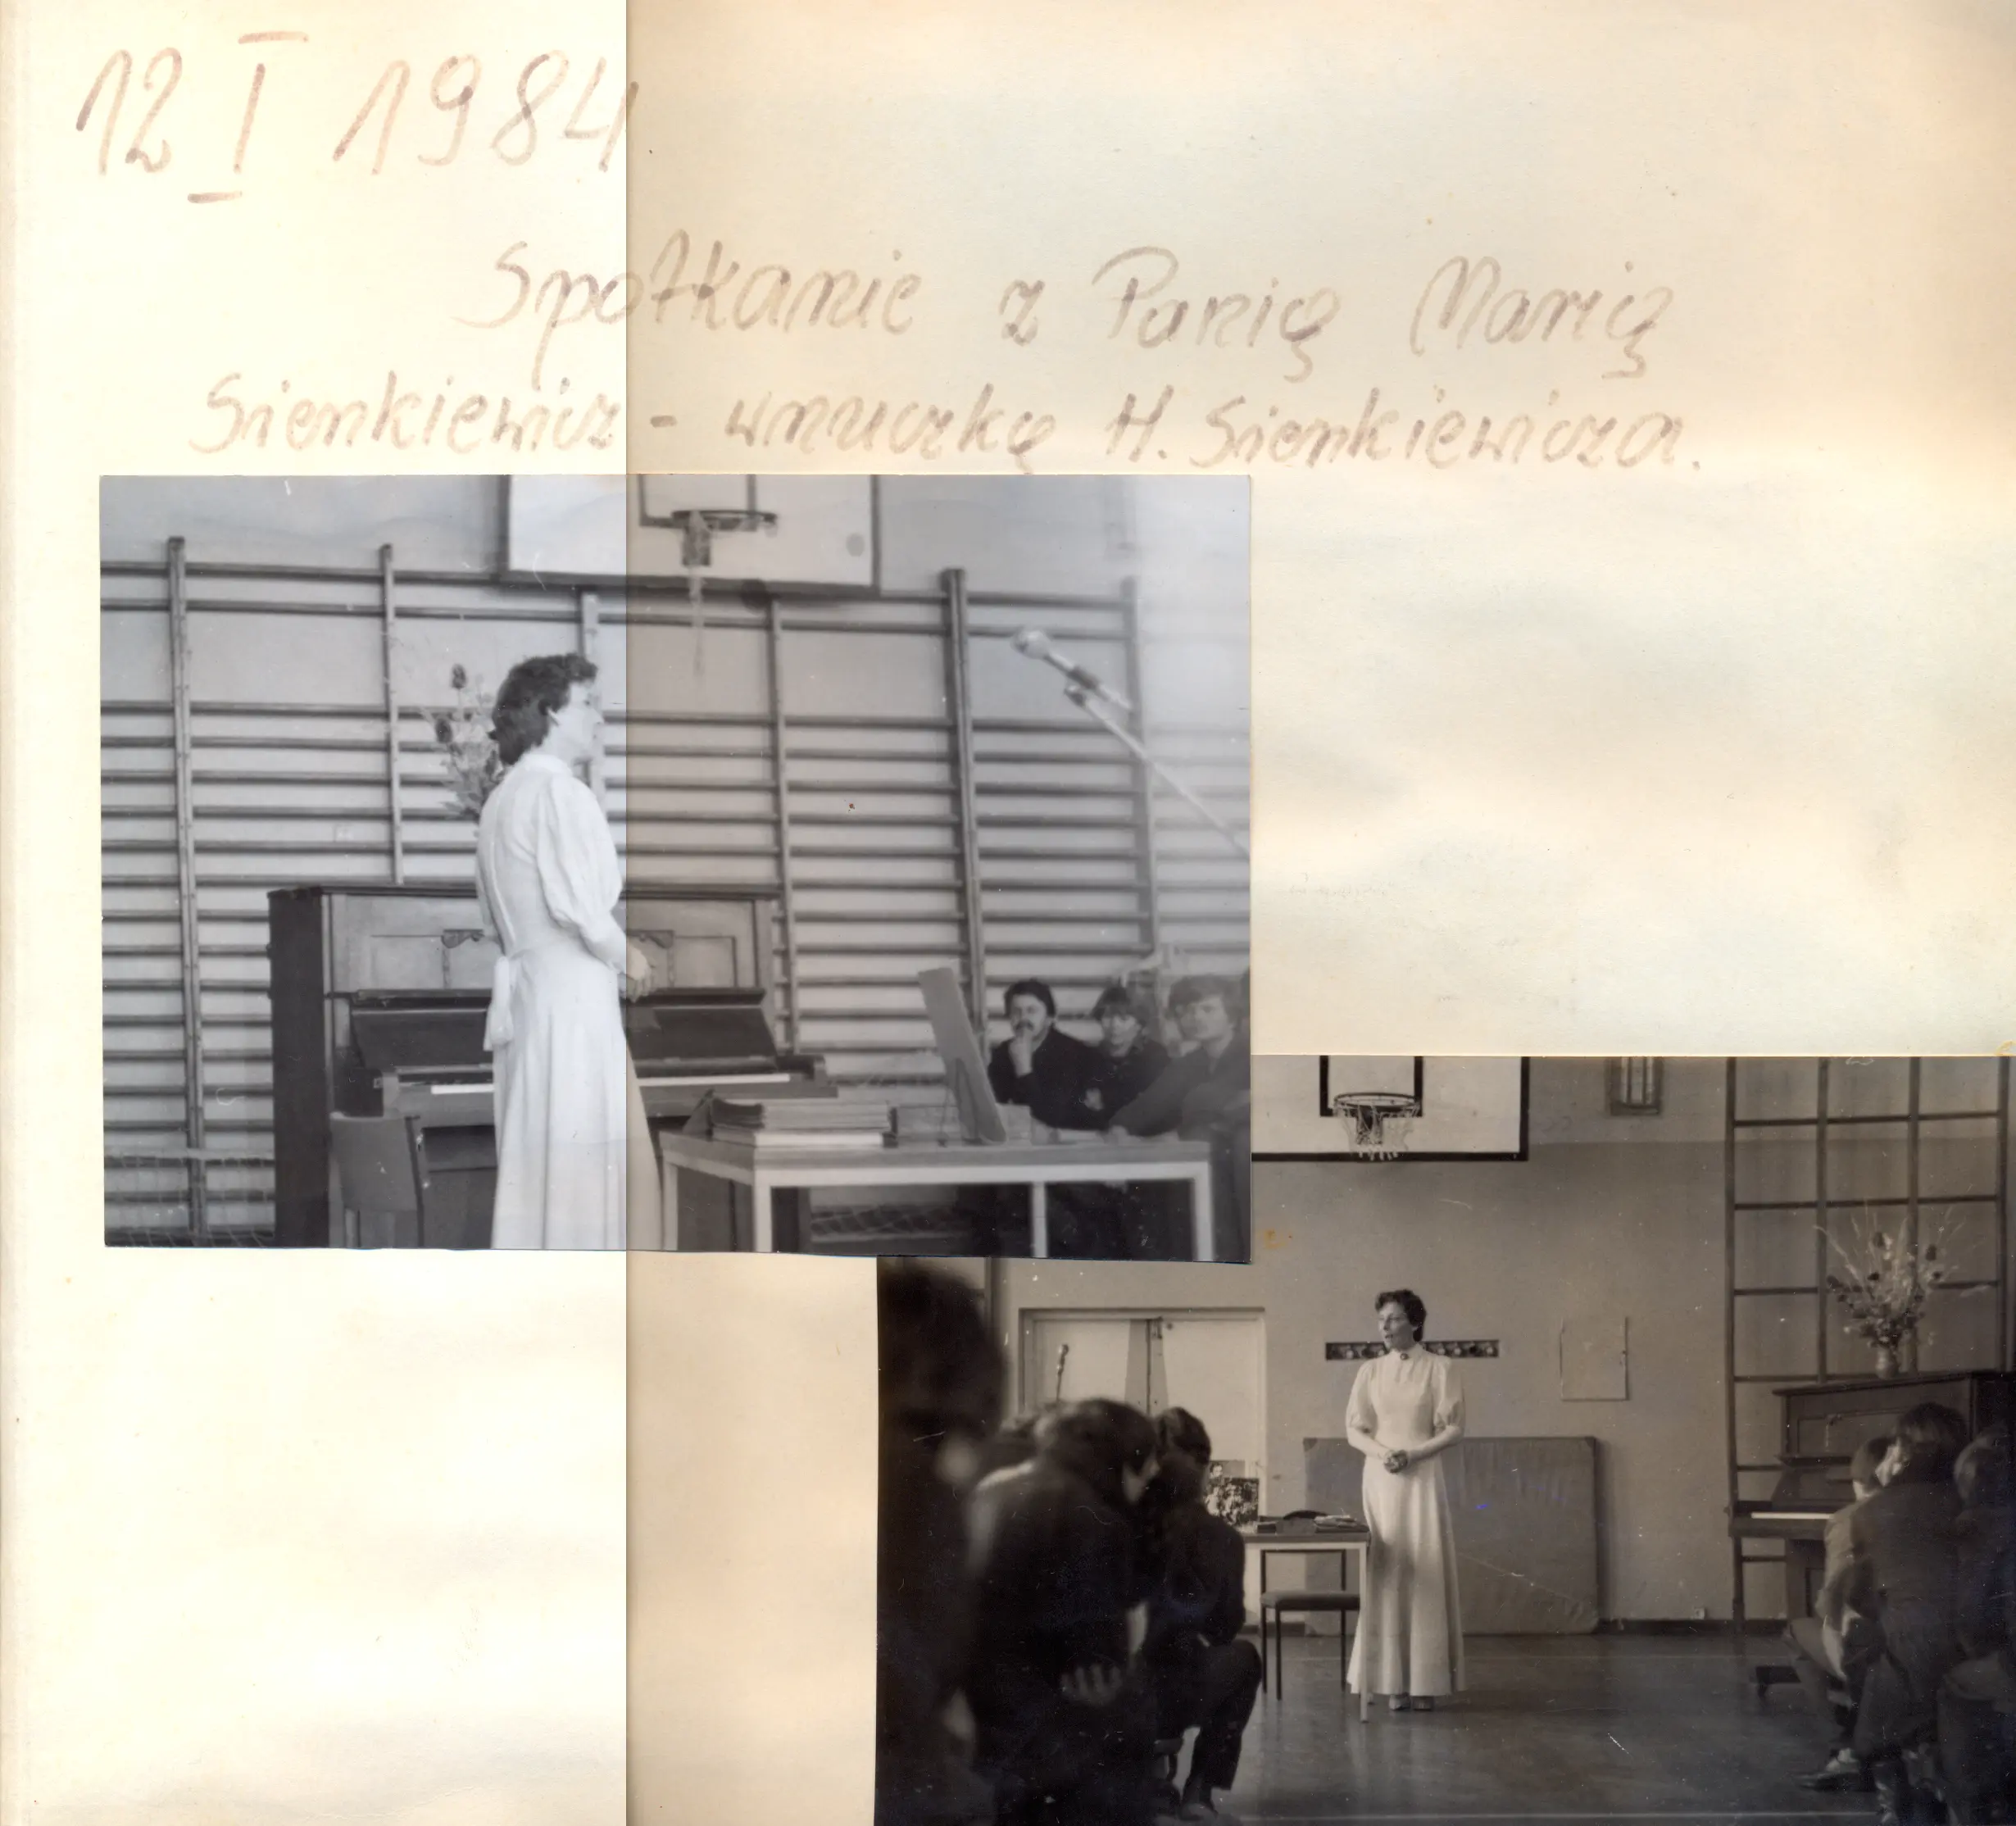 12 I 1984
Spotkanie z Panią Marią
Sienkiewicz - wnuczką H. Sienkiewicza.